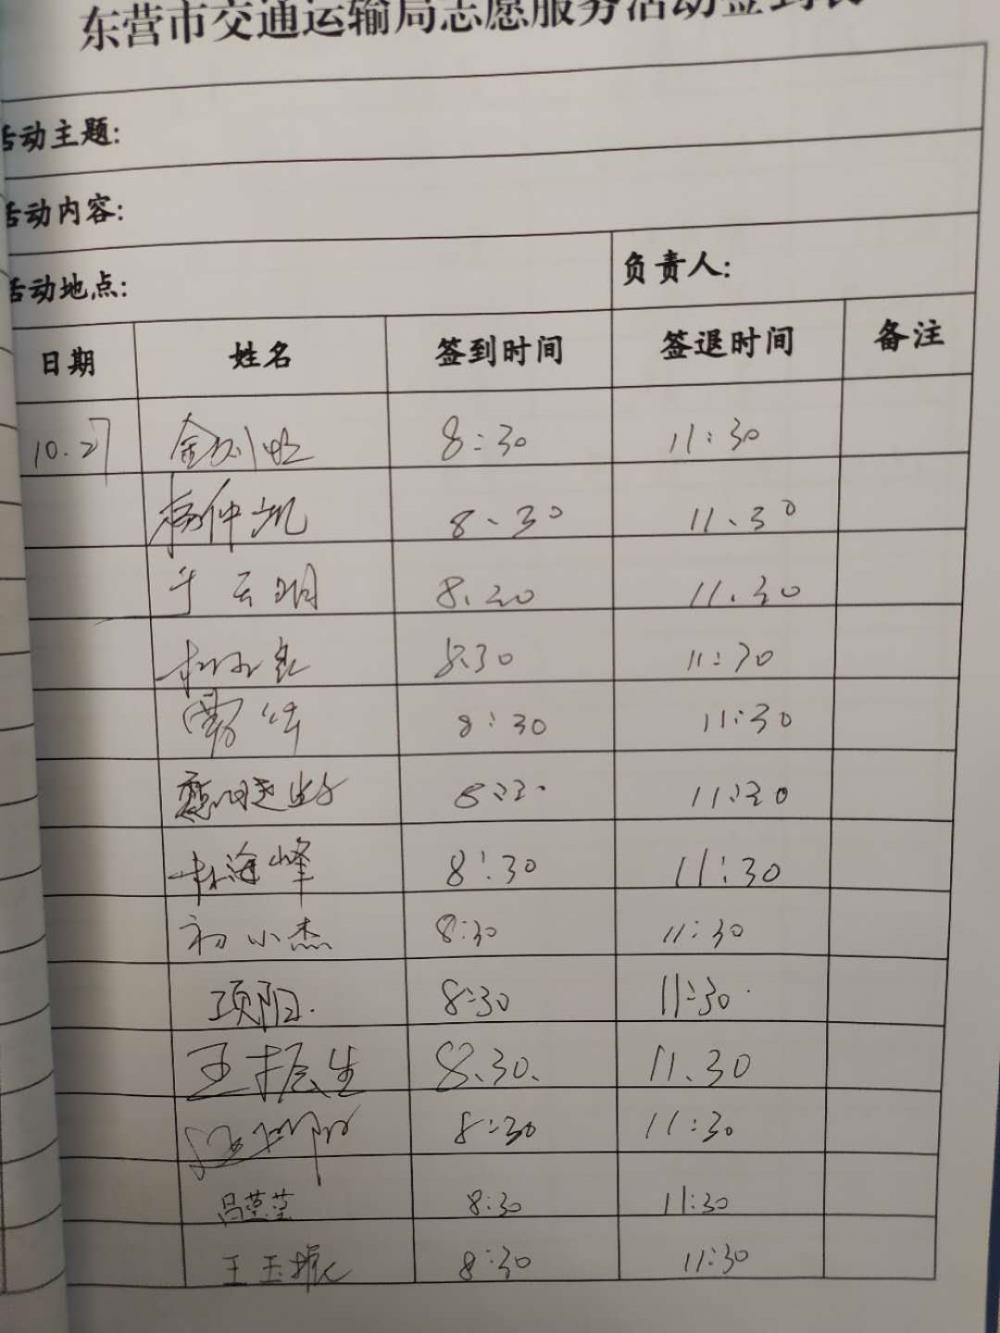 东营市交通运输局志愿服务活动签到表
活动主题:
活动内容:
活动地点: 负责人:
日期 姓名 签到时间 签退时间 备注
10.27 8:30 11:30
杨仲凯 8、30 11、30
于云明 8、30 11.30
8:30 11:30
8:30 11:30
8:30 11:30
林海峰 8:30 11:30
初小杰 8:30 11:30
项阳. 8:30 11:30
王振生 8、30、 11、30
8:30 11:30
吕莹莹 8:30 11:30
王玉振 8:30 11:30